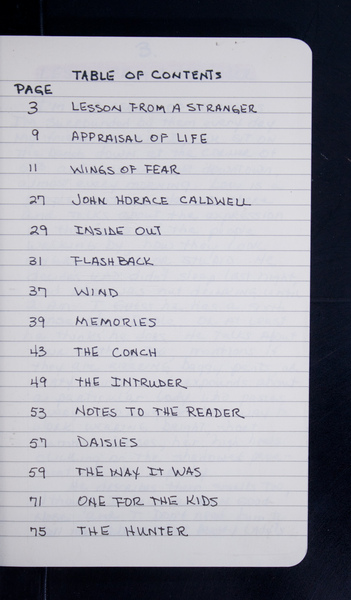 TABLE OF CONTENTS
PAGE
3 LESSON FROM A STRANGER
9 APPRAISAL OF LIFE
11 WINGS OF FEAR
27 JOHN HORACE CALDWELL
29 INSIDE OUT
31 FLASHBACK
37 WIND
39 MEMORIES
43 THE CONCH
49 THE INTRUDER
53 NOTES TO THE READER
57 DAISIES
59 THE WAY IT WAS
71 ONE FOR THE KIDS
75 THE HUNTER